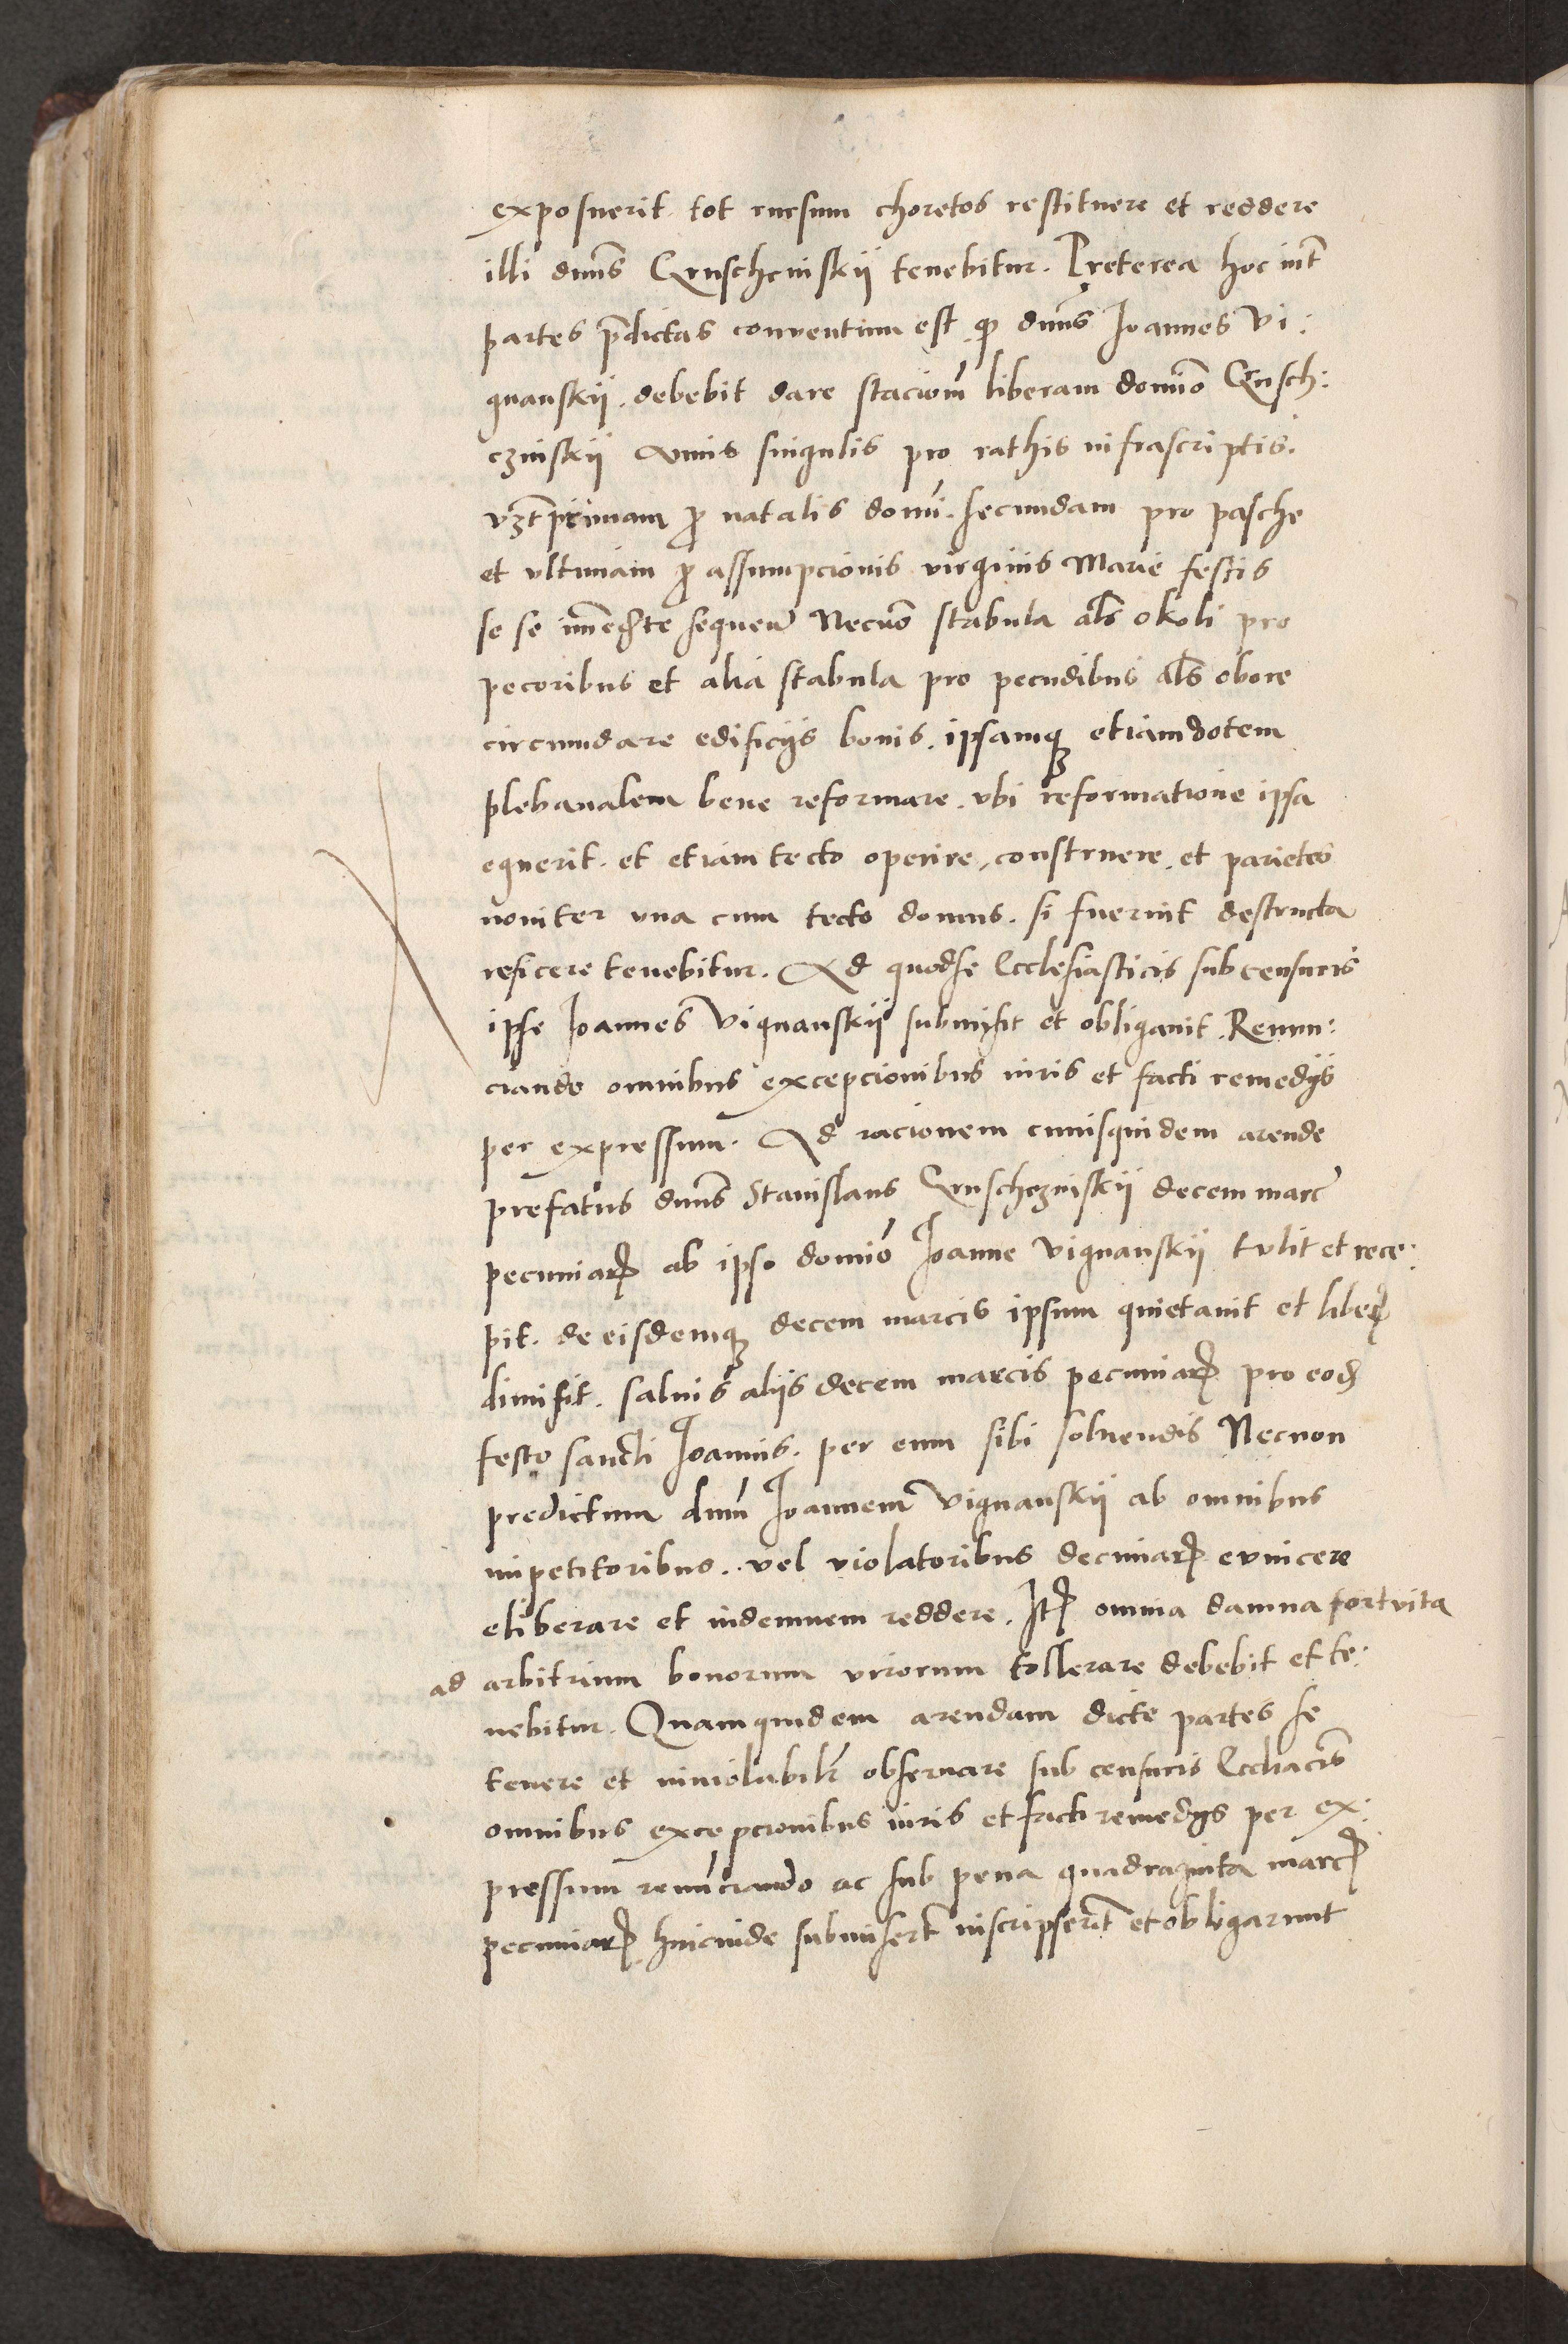 exposuerit. tot rursum choretos restituere et reddere
illi dmũs Gruschcinskÿ tenebitur. Preterea hoc int̃
partes p̃dictas conventum est ꝙ dnũs Joannes Vi:
gnanskÿ. debebit dare stacioñ liberam domĩo Grusch:
czinskÿ Annis singulis pro rathis infrascriptis.
vzt̃ primam ꝓ natalis domĩ. secundam pro pasche
et vltimam ꝓ assumpcionis virginis Marie festis
se se im̃ediate sequeñ Necnõ stabula al̃s okoli pro
pecoribus et alia stabula pro pecudibus al̃s obore
circumdare edificijs bonis. ipsamqꝫ etiam dotem
plebanalem bene reformare. vbi reformatione ipsa
eguerit. et etiam tecto operire, construere. et parietes
noviter vna cum tecto domus. si fuerint destructa
reficere tenebitur. Ad quod se Ecclesiasticis sub censuris
ipse Joannes Vignanskÿ submisit et obligauit. Renun:
ciando omnibus excepcionibus iuris et facti remedijs
per expressum. Ad racionem cuiusquidem arende
prefatus dnũs Stanislaus Gruschezniskÿ decem marc̃
pecuniarꝝ ab ipso domĩo Joanne Vignanskÿ tulit et rece:
pit. de eisdemqꝫ decem marcis ipsum quietauit et liberꝝ
dimisit. saluis alijs decem marcis pecuniarꝝ pro eodꝫ
festo sancti Joannis. per eum sibi soluendis Necnon
predictum dnũ Joannem Vignanskÿ ab omnibus
impetitoribus.. vel violatoribus decimarꝝ evincere
eliberare et indemnem reddere. Itꝫ omnia damna fortvita
ad arbitrium bonorum virorum tollerare debebit et te:
nebitur. Quamquidem arendam dicte partes se
tenere et inuiolabilr̃ obseruare sub censuris Eccliacis̃
omnibus excepcionibus iuris et facti remedijs per ex:
pressum renũciando ac sub pena quadraginta marcꝝ
pecuniarꝝ hincinde submisert̃ inscripserũt et obligarunt